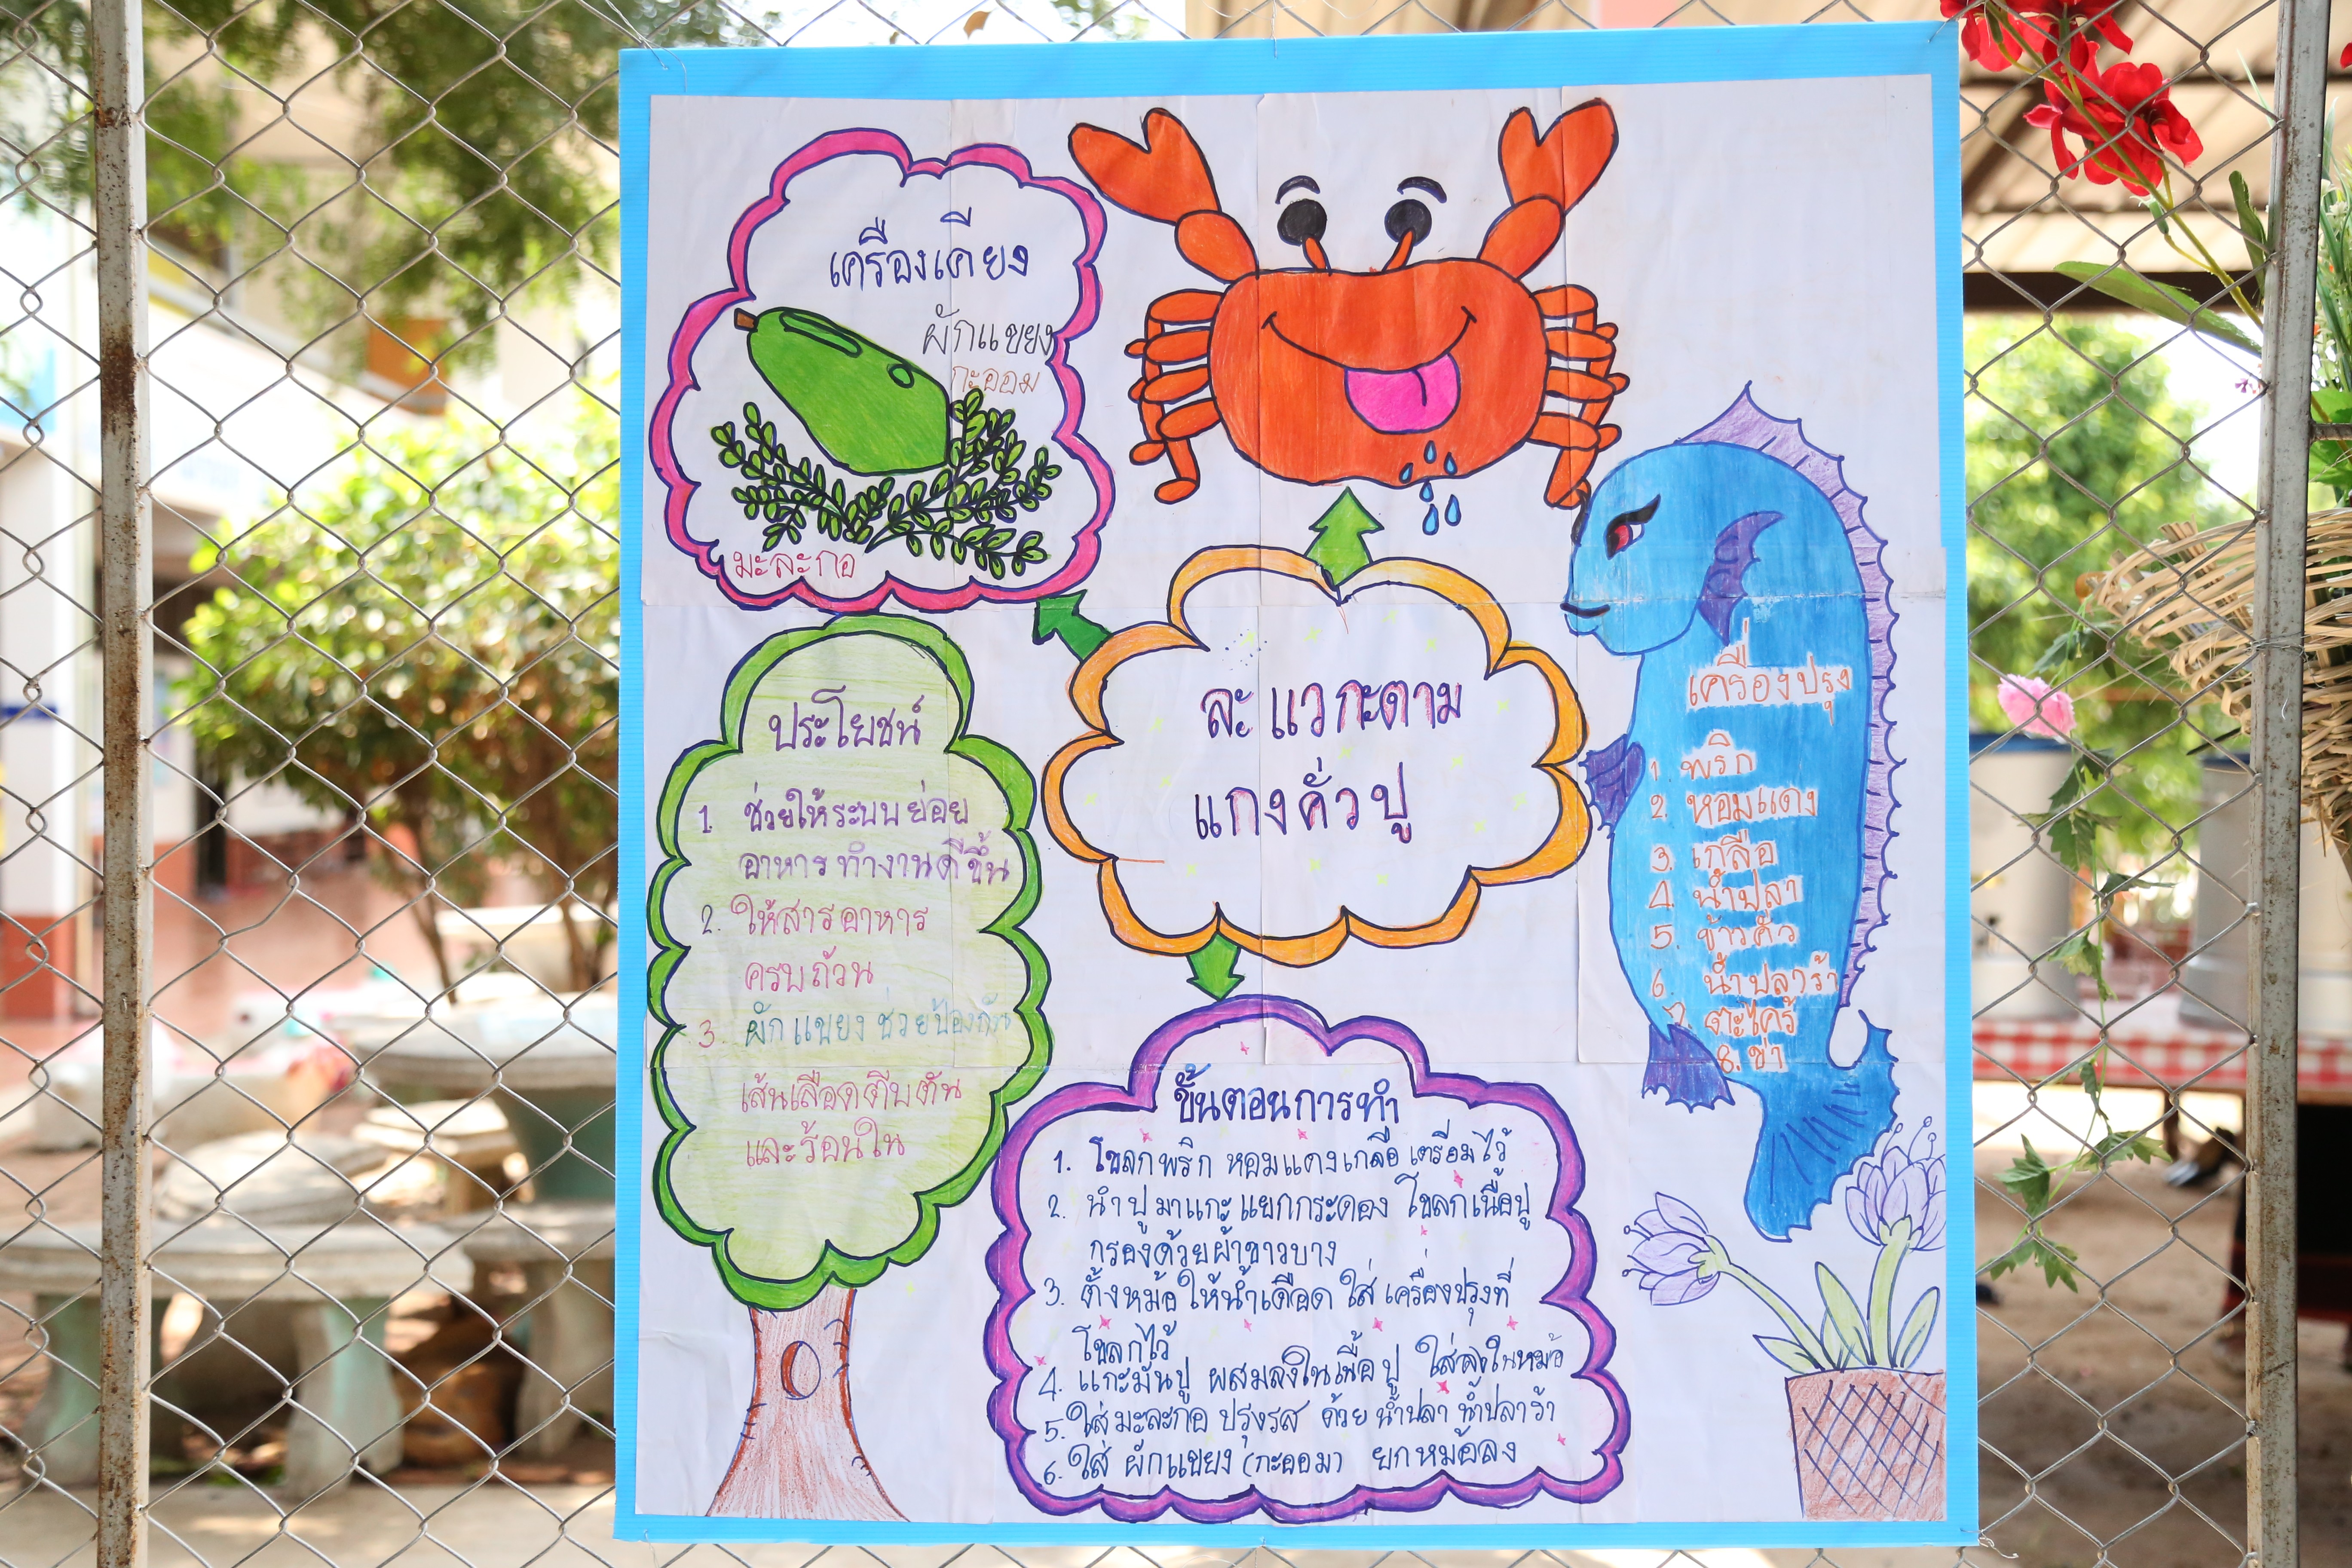 เครื่องเคียง
ผักแขยง
กะออม
มะละกอ
ละแวกะตาม
แกงคั่วปู
ประโยชน์
1. ช่วยให้ระบบย่อย
อาหารทำงานดีขึ้น
2. ให้สารอาหาร
ครบถ้วน
3. ผักแขยงช่วยป้องกัน
เส้นเลือดตีบตัน
และร้อนใน
เครื่องปรุง
1. พริก
2. หอมแดง
3. เกลือ
4. น้ำปลา
5. ข้าวคั่ว
6. น้ำปลาร้า
7. ตะไคร้
8. ข่า
ขั้นตอนการทำ
1. โขลกพริก หอมแดงเกลือ เตรียมไว้
2. นำปูมาแกะแยกกระดอง โขลกเนื้อปู
กรองด้วยผ้าขาวบาง
3. ตั้งหม้อให้น้ำเดือด ใส่เครื่องปรุงที่
โขลกไว้
4. แกะมันปู ผสมลงในเนื้อปู ใส่ลงในหม้อ
5. ใส่มะละกอ ปรุงรส ด้วย น้ำปลา น้ำปลาร้า
6. ใส่ ผักแขยง (กะออม) ยกหม้อลง